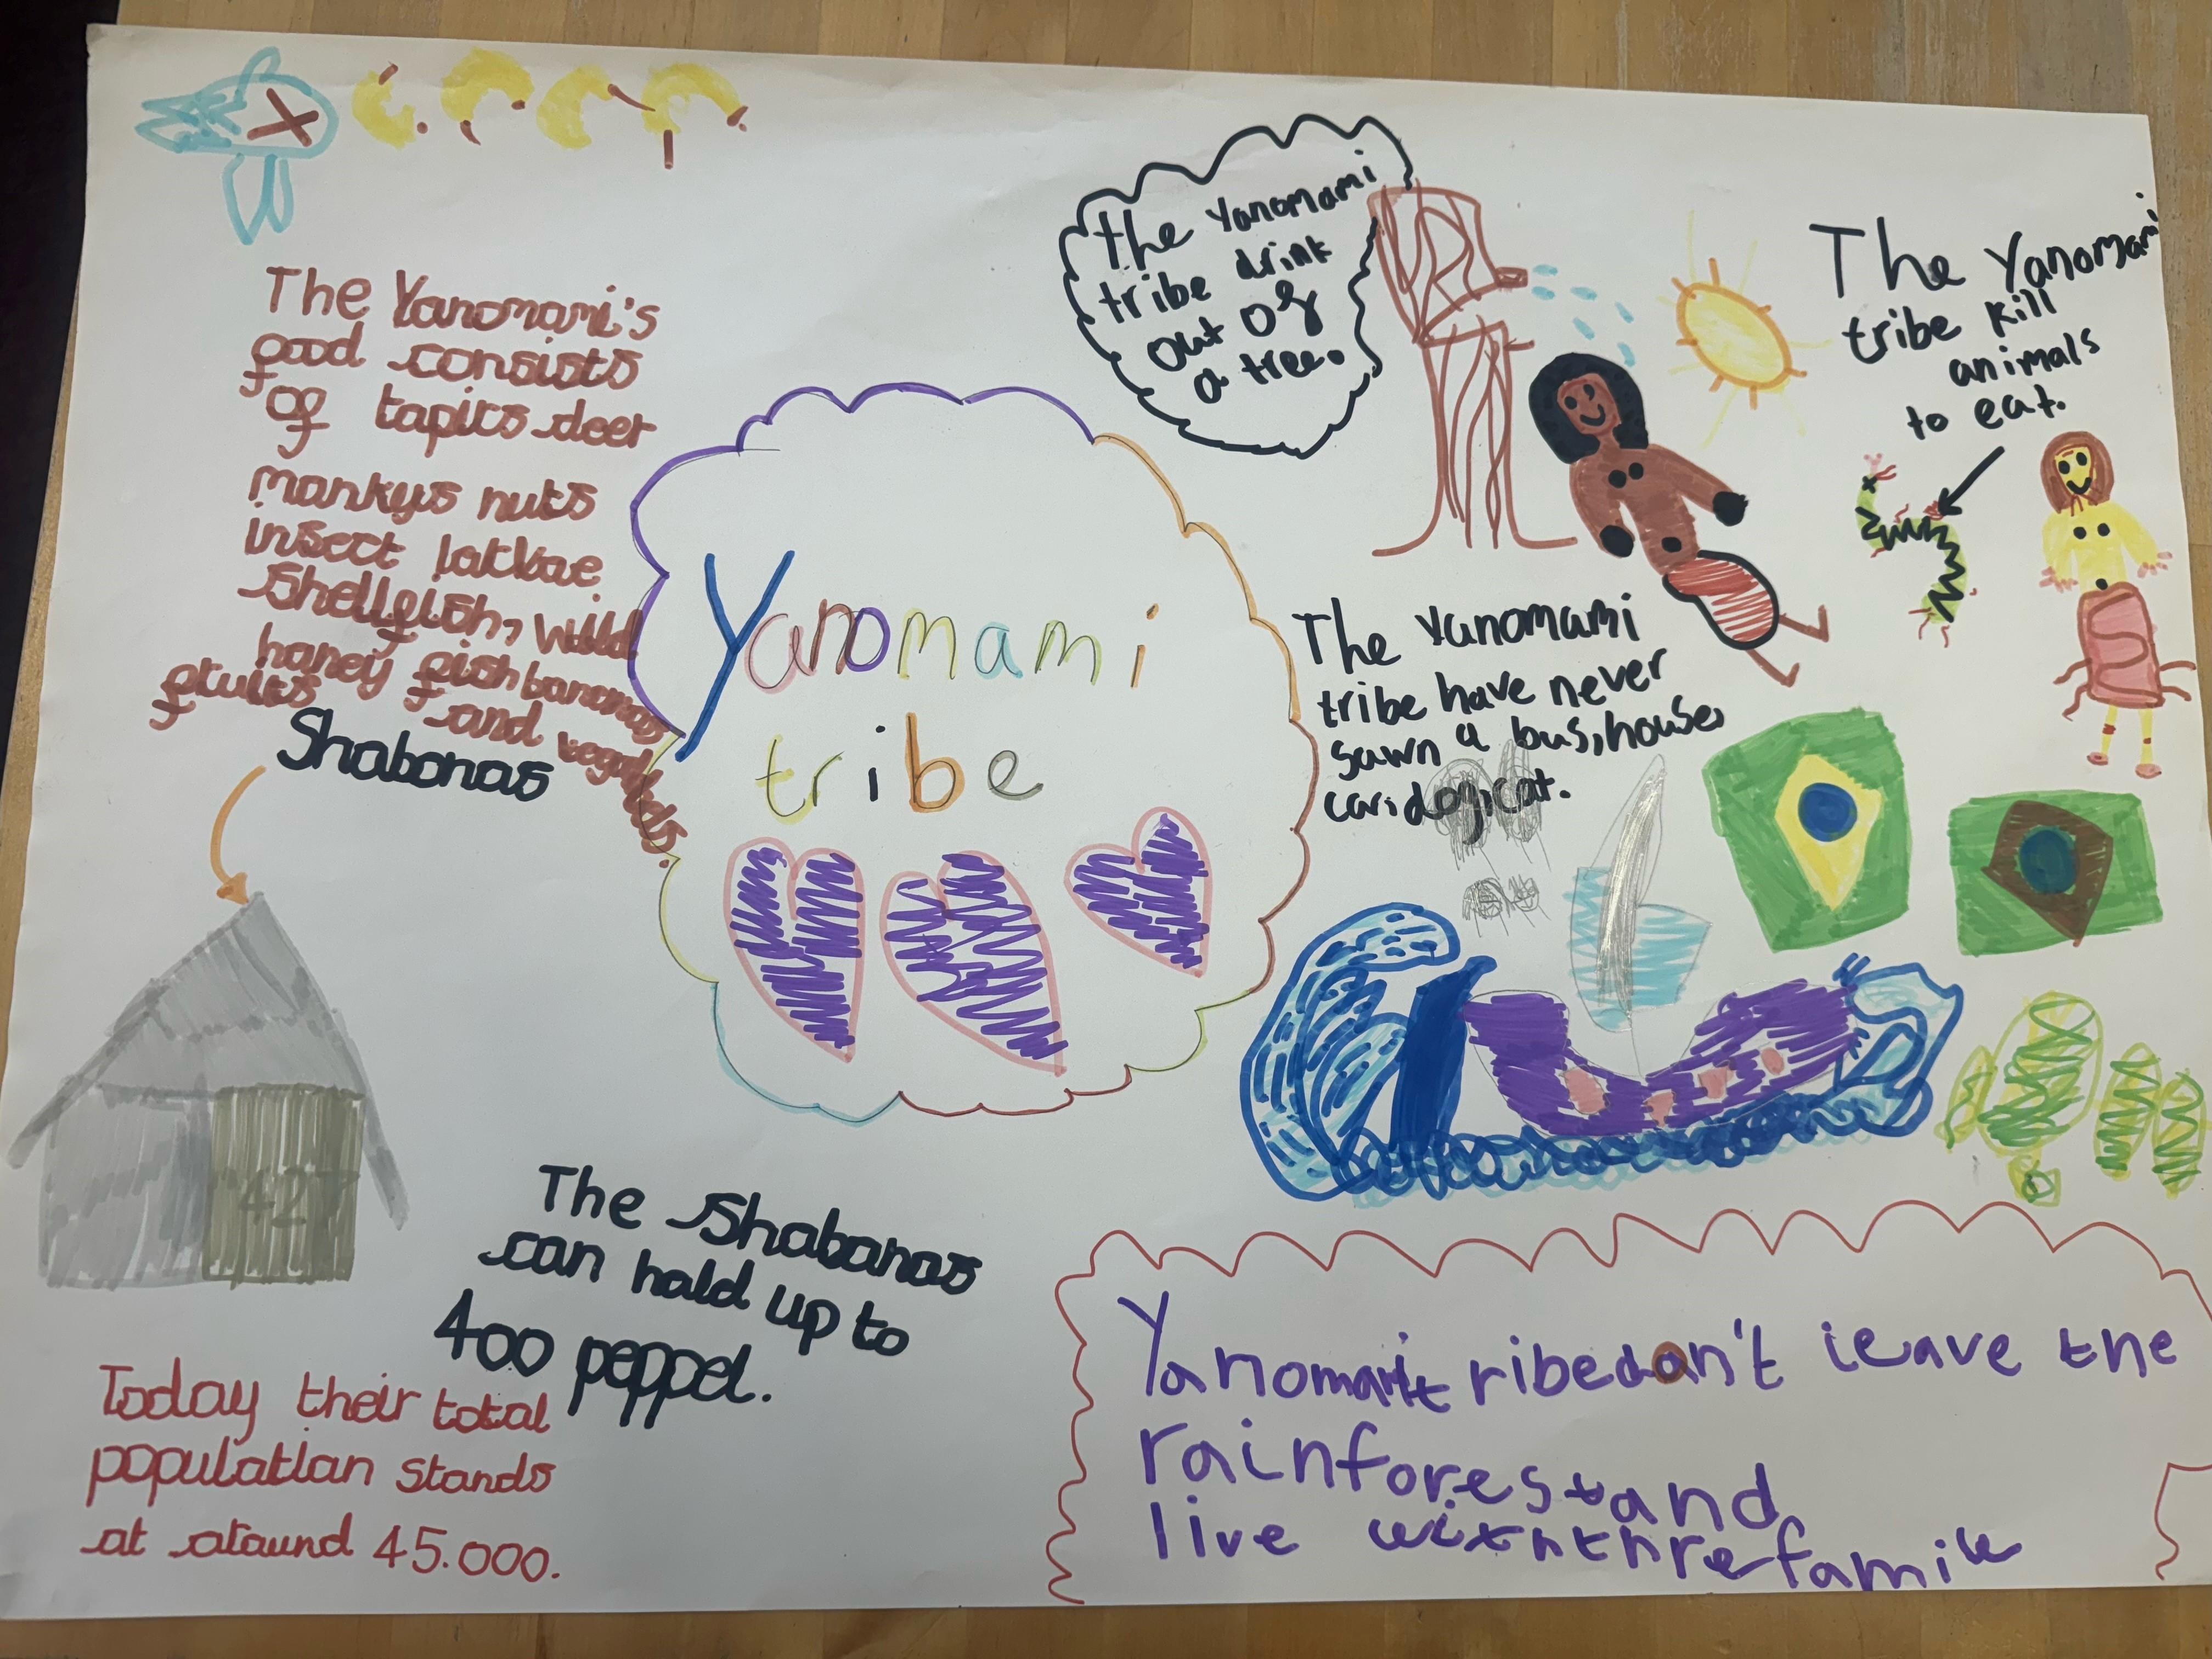 The Yanomami's
food consists
of tapirs deer
monkys nuts
insect larvae
shellfish, wild
honey fish bananas
fruits and
Shabonos
Yanomami
tribe
the Yanomami
tribe drink
out of
a tree.
The Yanomami
tribe kill
animals
to eat.
The Yanomami
tribe have never
sawn a bus, house,
car, dog, cat.
427
The Shabonos
can hold up to
400 peppel.
Today their total
population stands
at around 45.000.
Yanomami tribe don't leave the
rainforest and
live with thre famile